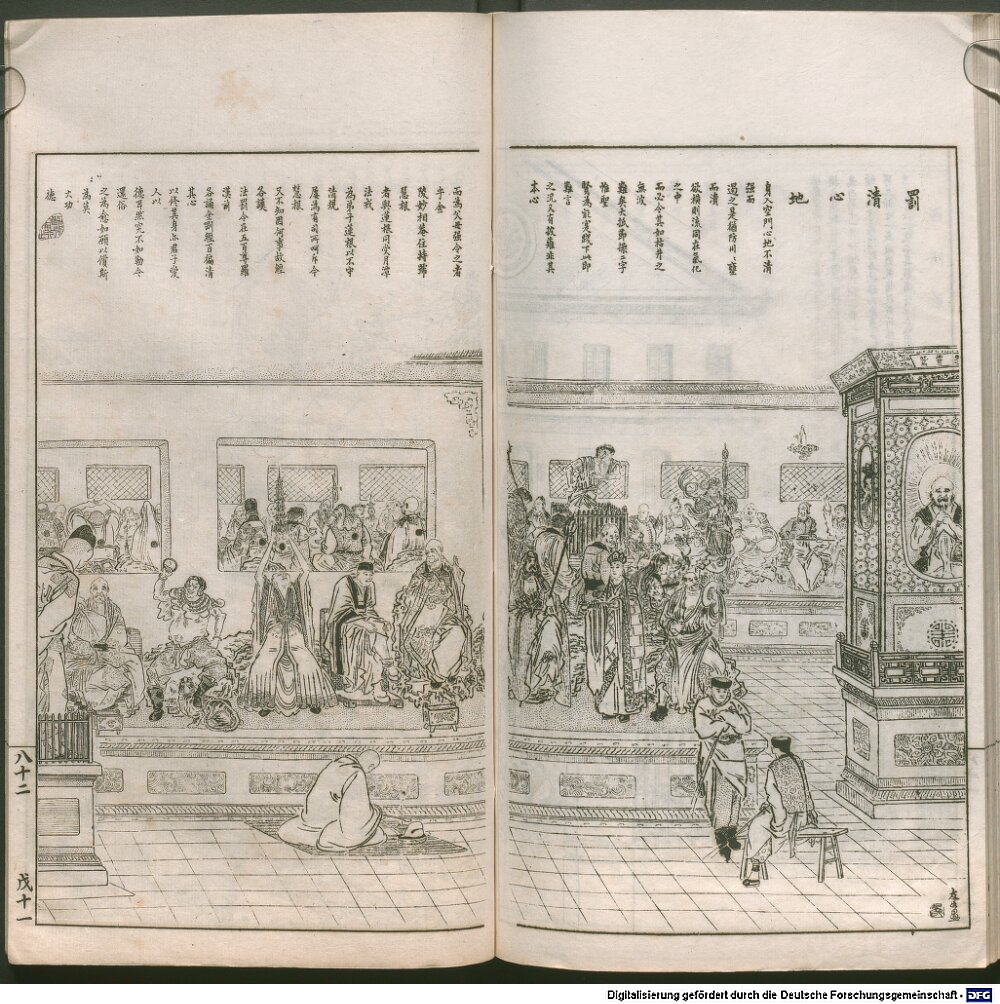 罰清心地
身入空門心地不清
強而
遏之是猶防川〻壅
而潰
欲橫則流同在氣化
之中
而必令其如枯井之
無波
難矣大抵節操二字
惟聖
賢為能下此即
難言
之況又有並其
本心
而為父母強令之者
乎金
陵妙相菴住持歸
慧根
者與蓮根同受月潭
法戒
為弟子蓮根以不守
清規
屢為有司所呵斥今
慧根
又不知因何事故經
各護
法罰令在五百尊羅
漢前
各誦金剛經百徧清
其心
以修其身亦君子愛
人以
德耳然究不如勒令
還俗
之為愈如願以償斯
為莫
大功
德
八十二
戊十一
Digitalisierung gefördert durch die Deutsche Forschungsgemeinschaft - DFG